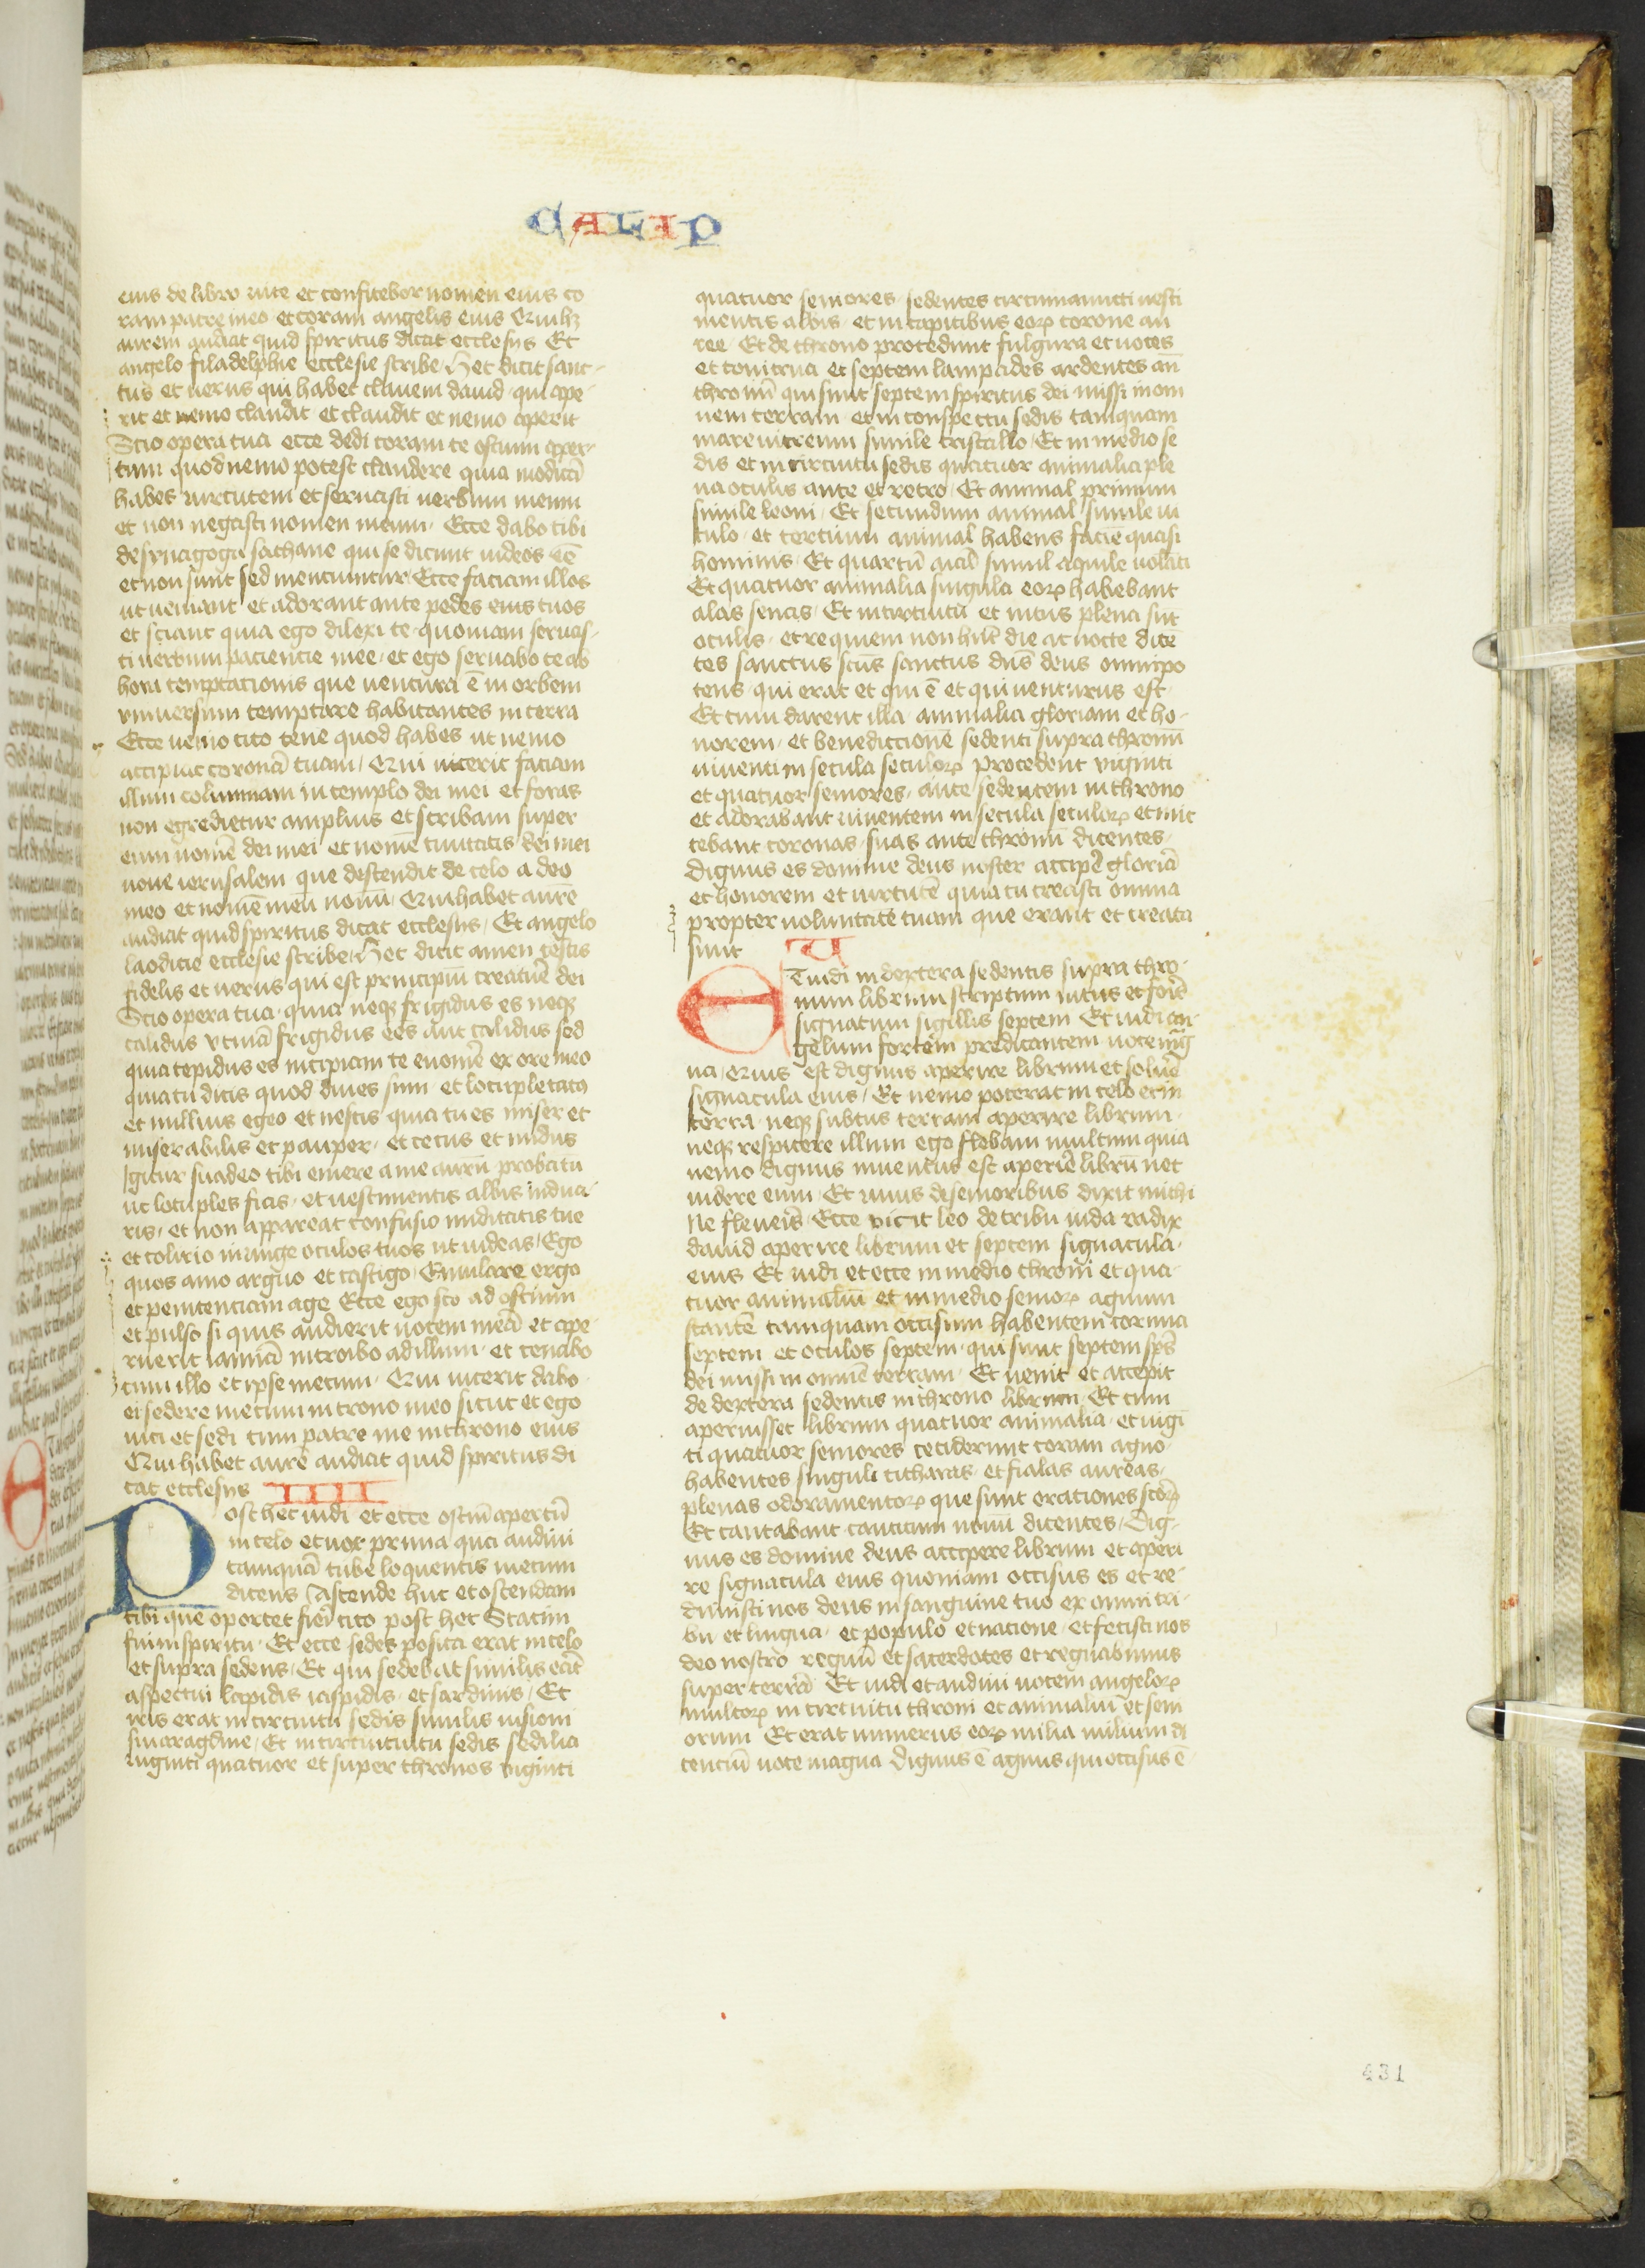 CALIP
eius de libro uite et confitebor nomen eius co
ram patre meo et coram angelis eius Qui hꝫ
aurem audiat quid spiritus dicat ecclesiis Et
angelo filadelphie ecclesie scribe Hec dicit sanc-
tus et uerus qui habet clauem dauid qui ape-
rit et nemo claudit et claudit et nemo aperit
Scio opera tua ecce dedi coram te ostium aper-
tum quod nemo potest claudere quia modicā
habes uirtutem et seruasti uerbum meum
et non negasti nomen meum Ecce dabo tibi
de synagoga sathane qui se dicunt iudeos eē
et non sunt sed mentiuntur Ecce faciam illos
ut ueniant et adorant ante pedes eius tuos
et sciant quia ego dilexi te quoniam seruas-
ti uerbum paciencie mee et ego seruabo te ab
hora temptacionis que uentura ē in orbem
vniuersum temptare habitantes in terra
Ecce uenio cito tene quod habes ut nemo
accipiat coronā tuam Qui uicerit faciam
illum columnam in templo dei mei et foras
non egredietur amplius et scribam super
eum nomē dei mei et nomē ciuitatis dei mei
noue ierusalem que descendit de celo a deo
meo et nomē meū nouū Qui habet aurē
audiat quid spiritus dicat ecclesiis Et angelo
laodicie ecclesie scribe Hec dicit amen testis
fidelis et uerus qui est principiū creature dei
Scio opera tua quia neqꝫ frigidus es neqꝫ
calidus vtinā frigidus ees aut calidus sed
quia tepidus es incipiam te euomē ex ore meo
quia tu dicis quod diues sum et locupletatus
et nullius egeo et nescis quia tu es miser et
miserabilis et pauper et cecus et nudus
Igitur suadeo tibi emere a me aurū probatū
ut locuples fias et uestimentis albis indua-
ris et non appareat confusio nuditatis tue
et colirio inunge oculos tuos ut uideas Ego
quos amo arguo et castigo Emulare ergo
et penitenciam age Ecce ego sto ad ostium
et pulso si quis audierit uocem meā et ape
ruerit ianuā introibo ad illum et cenabo
cum illo et ipse mecum Qui uicerit dabo
ei sedere mecum in trono meo sicut et ego
uici et sedi cum patre me in throno eius
Qui habet aurē audiat quid spiritus di
cat ecclesiis IIII
Post hec uidi et ecce ostiū apertū
in celo et uox prima quā audiui
tamquā tube loquentis mecum
dicens Ascende huc et ostendam
tibi que oportet fieri cito post hec Statim
fui in spiritu Et ecce sedes posita erat in celo
et supra sedens Et qui sedebat similis erat
aspectui lapidis iaspidis et sardinis Et
yris erat in circuitu sedis similis uisioni
smaragdine Et in circuituitu sedis sedilia
uiginti quatuor et super thronos viginti
quatuor seniores sedentes circumamicti uesti
mentis albis et in capitibus eorꝝ corone au
ree Et de throno procedunt fulgura et uoces
et tonitrua et septem lampades ardentes an̄
thronū qui sunt septem spiritus dei missi in om
nem terram et in conspectu sedis tamquam
mare uitreum simile cristallo Et in medio se
dis et in circuitu sedis quatuor animalia ple
na oculis ante et retro Et animal primum
simile leoni Et secundum animal simile ui
tulo et tertium animal habens faciē quasi
hominis Et quartū aīal simil aquile uolāti
Et quatuor animalia singula eorꝝ habebant
alas senas Et in circuitu et intus plena sūt
oculis et requiem non hnt die ac nocte dicē
tes sanctus scūs sanctus dn̄s deus omnipo
tens qui erat et qui ē et qui uenturus est
Et cum darent illa animalia gloriam et ho-
norem et benediccionē sedenti supra thronū
uiuenti in secula seculorꝝ Procedent viginti
et quatuor seniores ante sedentem in throno
et adorabant uiuentem in secula seculorꝝ et mit
tebant coronas suas ante thronū dicentes
Dignus es domine deus noster accipē gloriā
et honorem et uirtutē quia tu creasti omnia
propter uoluntatē tuam que erant et creata
sunt V
Et uidi in dextera sedentis supra thro-
num librum scriptum intus et foris
signatum sigillis septem Et uidi an-
gelum fortem predicantem uoce mag
na Quis est dignus aperire librum et soluē
signacula eius Et nemo poterat in celo et in
terra neqꝫ subtus terram aperire librum
neqꝫ respicere illum ego flebam multum quia
nemo dignus inuentus est aperire librū nec
uidere eum Et unus de senioribus dixit michi
Ne fleueris Ecce vicit leo de tribu iuda radix
dauid aperire librum et septem signacula
eius Et uidi et ecce in medio throni et qua-
tuor animaliū et in medio seniorꝝ agnum
stantē tamquam occisum habentem cornua
septem et oculos septem qui sunt septem sps
dei missi in omnē terram Et uenit et accepit
de dextera sedentis in throno librum Et cum
aperuisset librum quatuor animalia et uigī
ti quatuor seniores ceciderunt coram agno
habentes singuli citharas et fialas aureas
plenas odoramentorꝝ que sunt orationes scōrꝝ
Et cantabant canticum nouū dicentes Dig-
nus es domine deus accipere librum et aperi
re signacula eius quoniam occisus es et re-
dimisti nos deus in sanguine tuo ex omni tri-
bu et lingua et populo et natione et fecisti nos
deo nostro regnū et sacerdotes et regnabimus
super terrā Et uidi et audiui uocem angelorꝝ
multorꝝ in circuitu throni et animaliū et seni
orum Et erat numerus eorꝝ milia milium di
centiū uoce magna Dignus ē agnus qui occisus ē
431